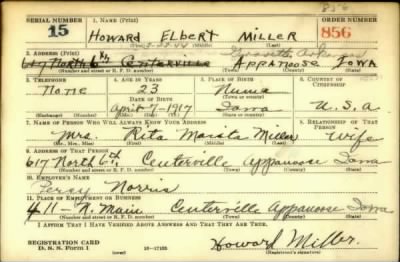 856
SERIAL NUMBER 1. NAME (Print) ORDER NUMBER
15 HOWARD ELBERT MILLER 856
(First) (Middle) (Last)
2. ADDRESS (Print)
617 North 6th Centerville APPANOOSE IOWA
(Number and street or R. F. D. number) (Town) (County) (State)
3. TELEPHONE 4. AGE IN YEARS 5. PLACE OF BIRTH 6. COUNTRY OF CITIZENSHIP
None 23 Numa
DATE OF BIRTH (Town or county)
April-7-1917 Iowa U.S.A
(Exchange) (Number) (Mo.) (Day) (Yr.) (State or country)
7. NAME OF PERSON WHO WILL ALWAYS KNOW YOUR ADDRESS 8. RELATIONSHIP OF THAT PERSON
Mrs. Rita Miller Wife
(Mr., Mrs., Miss) (First) (Middle) (Last)
9. ADDRESS OF THAT PERSON
617 North 6th Centerville Appanoose Iowa
(Number and street or R. F. D. number) (Town) (County) (State)
10. EMPLOYER'S NAME
Percy Norris
11. PLACE OF EMPLOYMENT OR BUSINESS
411-N. Main Centerville Appanoose Iowa
(Number and street or R. F. D. number) (Town) (County) (State)
I AFFIRM THAT I HAVE VERIFIED ABOVE ANSWERS AND THAT THEY ARE TRUE.
REGISTRATION CARD
D. S. S. Form 1 16-17105 Howard Miller.
(Registrant's signature)